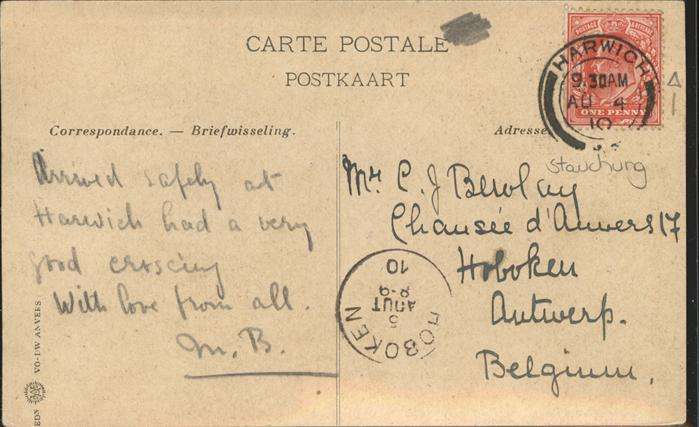 CARTE POSTALE
POSTKAART
Correspondance. — Briefwisseling.
Adresse
HARWICH
9.30AM
AU 4
10
POSTAGE
ONE PENNY
Stauchung
Arrived safely at
Harwich had a very
good crossing
With love from all.
M. B.
Mr C. J
Chausée d'Anvers 17
Hoboken
Antwerp.
Belgium.
HOBOKEN
5
AOUT
8-9
10
EDN
VO-DW ANVERS